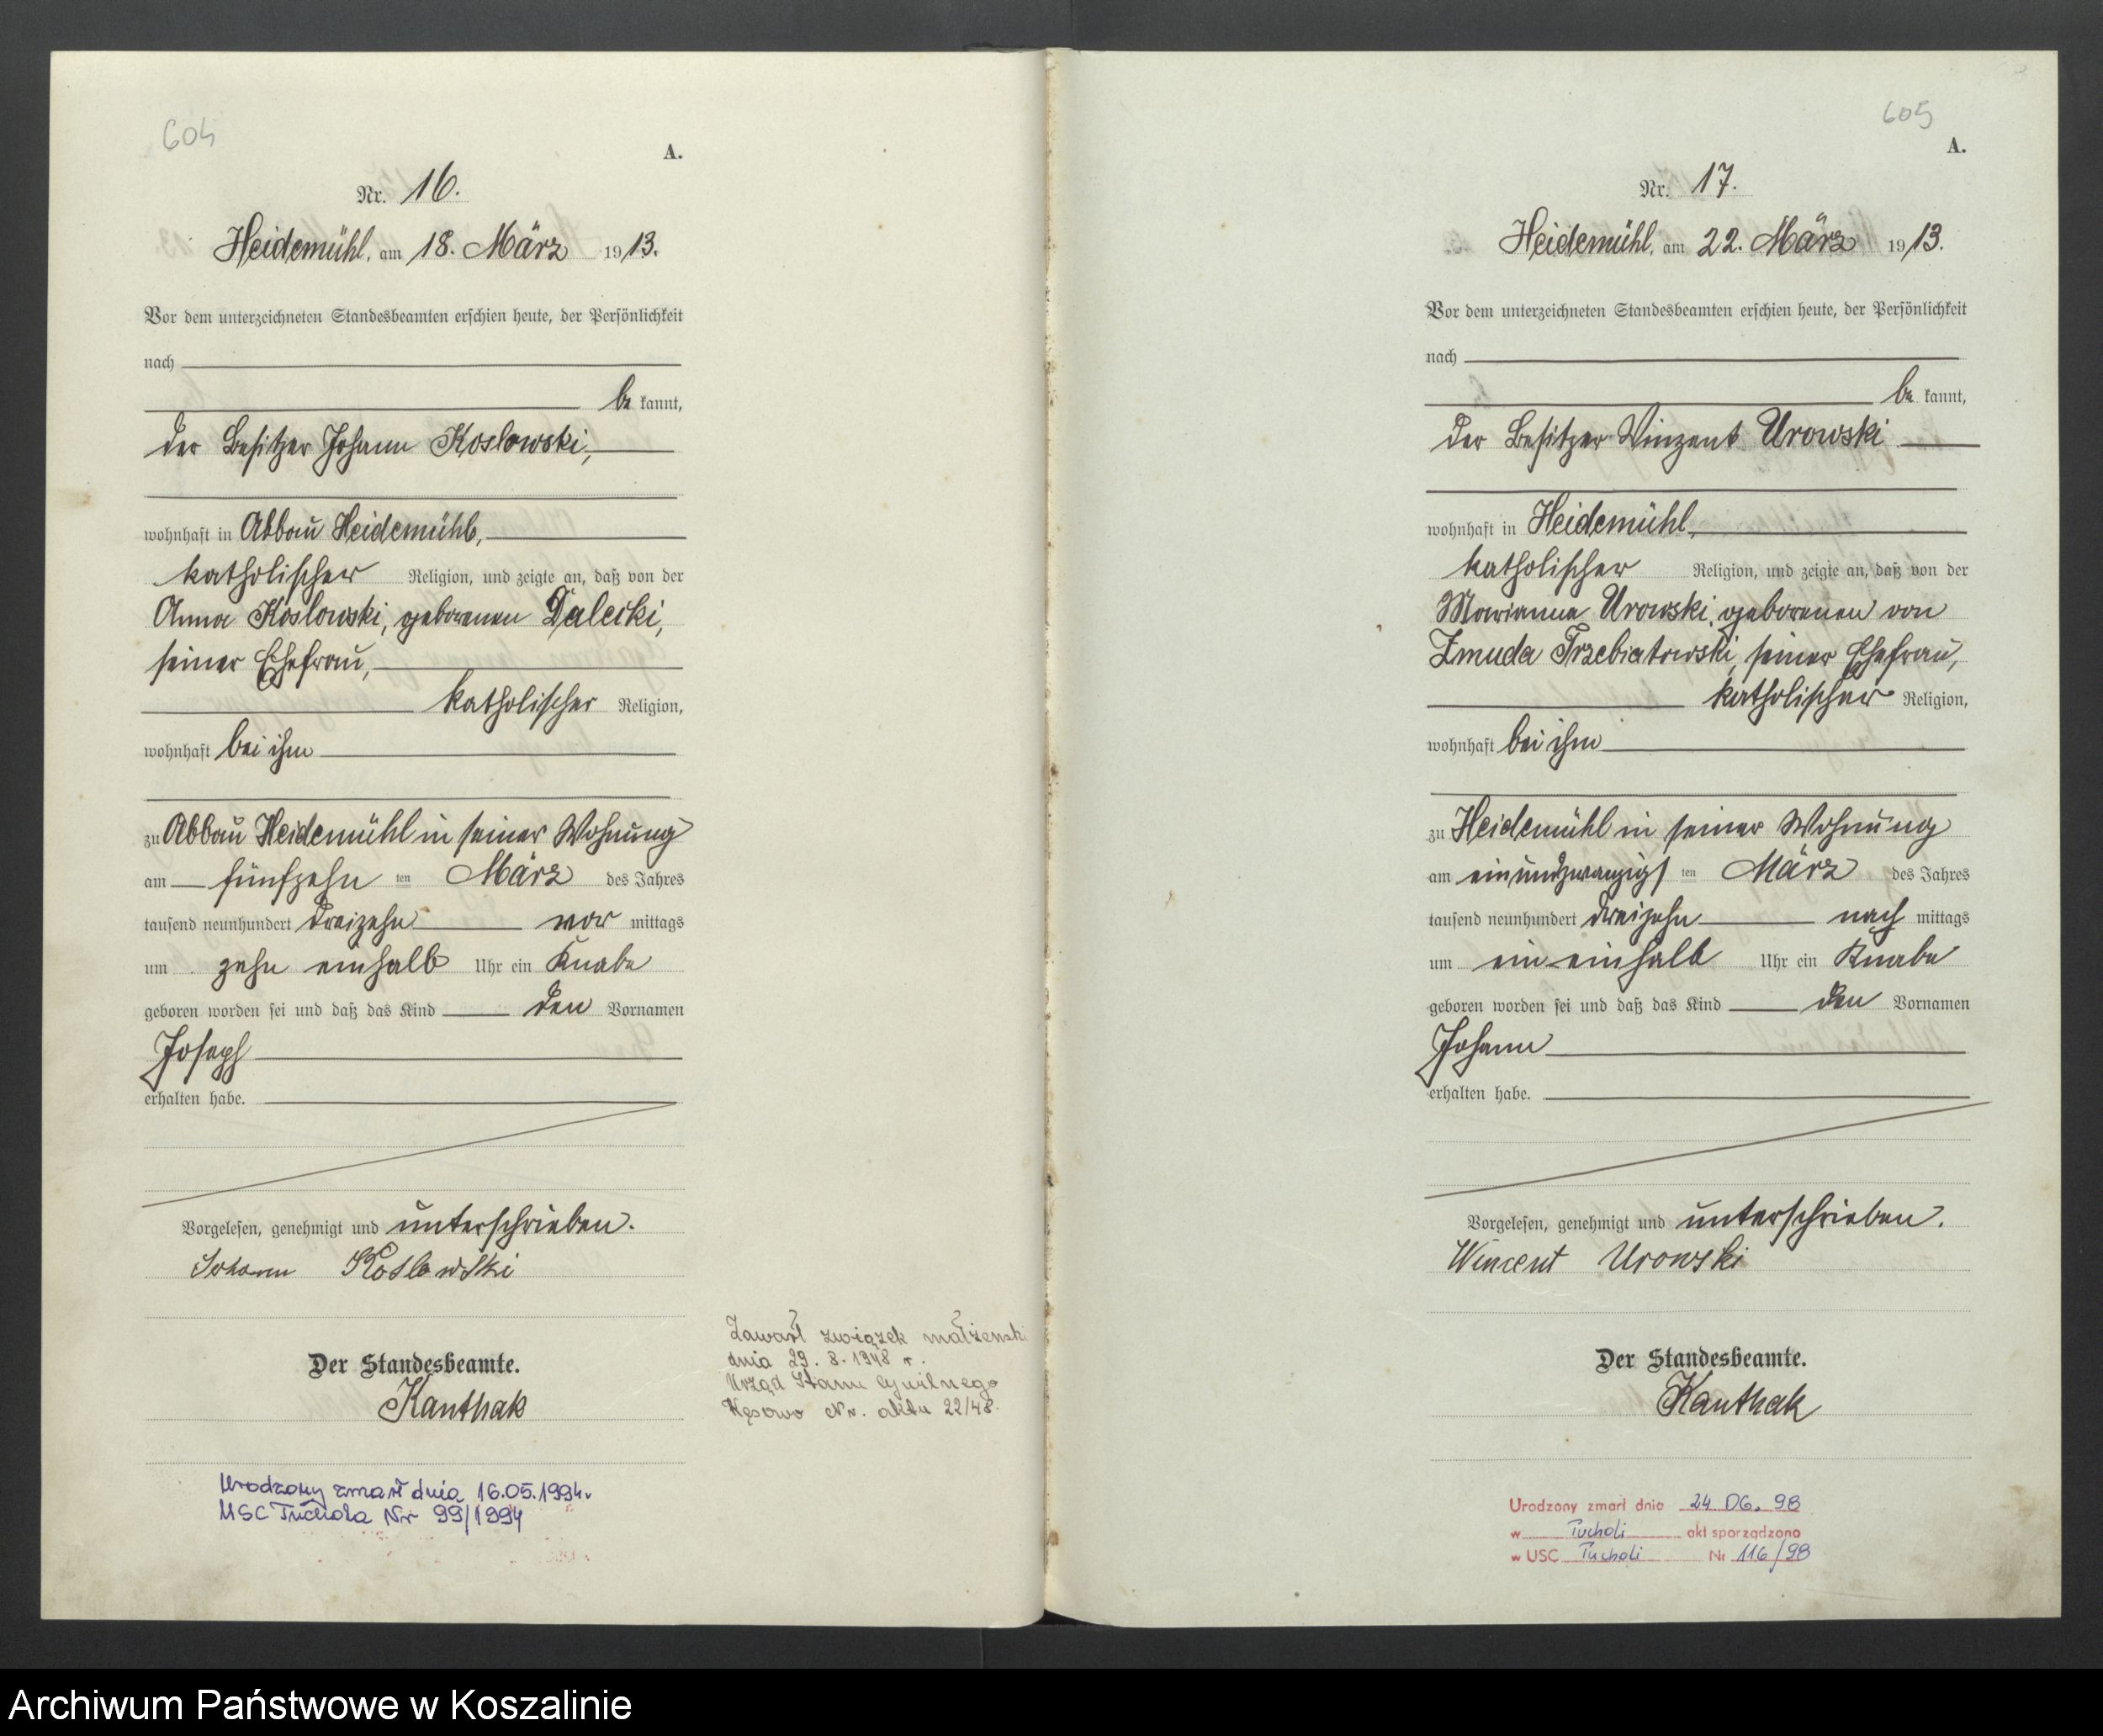 604
A.
Nr. 16.
Heidemühl, am 18. März 1913.
Vor dem unterzeichneten Standesbeamten erschien heute, der Persönlichkeit
nach
be kannt,
der Besitzer Johann Koslowski,
wohnhaft in Abbau Heidemühl,
katholischer Religion, und zeigte an, daß von der
Anna Koslowski, geborenen Dalecki,
seiner Ehefrau,
katholischer Religion,
wohnhaft bei ihm
zu Abbau Heidemühl in seiner Wohnung
am fünfzehn ten März des Jahres
tausend neunhundert dreizehn vor mittags
um zehn einhalb Uhr ein Knabe
geboren worden sei und daß das Kind den Vornamen
Joseph
erhalten habe.
Vorgelesen, genehmigt und unterschrieben.
Johann Koslowski
Der Standesbeamte.
Kanthak
Zawarł związek małżeński
dnia 29. 8. 1948 r.
Urząd Stanu Cywilnego
Kęsowo Nr. aktu 22/48.
Urodzony zmarł dnia 16.05.1994.
USC Tuchola Nr 99/1994
605
A.
Nr. 17.
Heidemühl, am 22. März 1913.
Vor dem unterzeichneten Standesbeamten erschien heute, der Persönlichkeit
nach
be kannt,
der Besitzer Vinzent Urowski
wohnhaft in Heidemühl,
katholischer Religion, und zeigte an, daß von der
Marianna Urowski, geborenen von
Zmuda Trzebiatowski, seiner Ehefrau,
katholischer Religion,
wohnhaft bei ihm
zu Heidemühl in seiner Wohnung
am einundzwanzigs ten März des Jahres
tausend neunhundert dreizehn nach mittags
um ein einhalb Uhr ein Knabe
geboren worden sei und daß das Kind den Vornamen
Johann
erhalten habe.
Vorgelesen, genehmigt und unterschrieben.
Wincent Urowski
Der Standesbeamte.
Kanthak
Urodzony zmarł dnia 24 06. 98
w Tucholi akt sporządzono
w USC Tucholi Nr 116/98
Archiwum Państwowe w Koszalinie